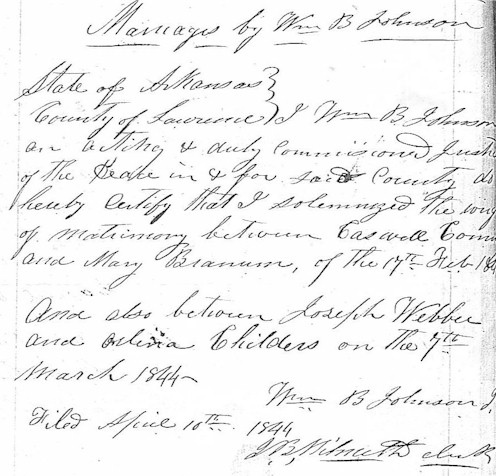 Marriages by Wm B Johnson
State of Arkansas
County of Lawrence } I Wm B Johnson
an acting & duly commissioned Justi
of the Peace in & for said County do
hereby Certify that I solemnized the
of matrimony between Caswell
and Mary Branum, of the 17th Feb 184
And also between Joseph Webber
and Childers on the 7th
March 1844
Wm B Johnson J
Filed April 10th 1844